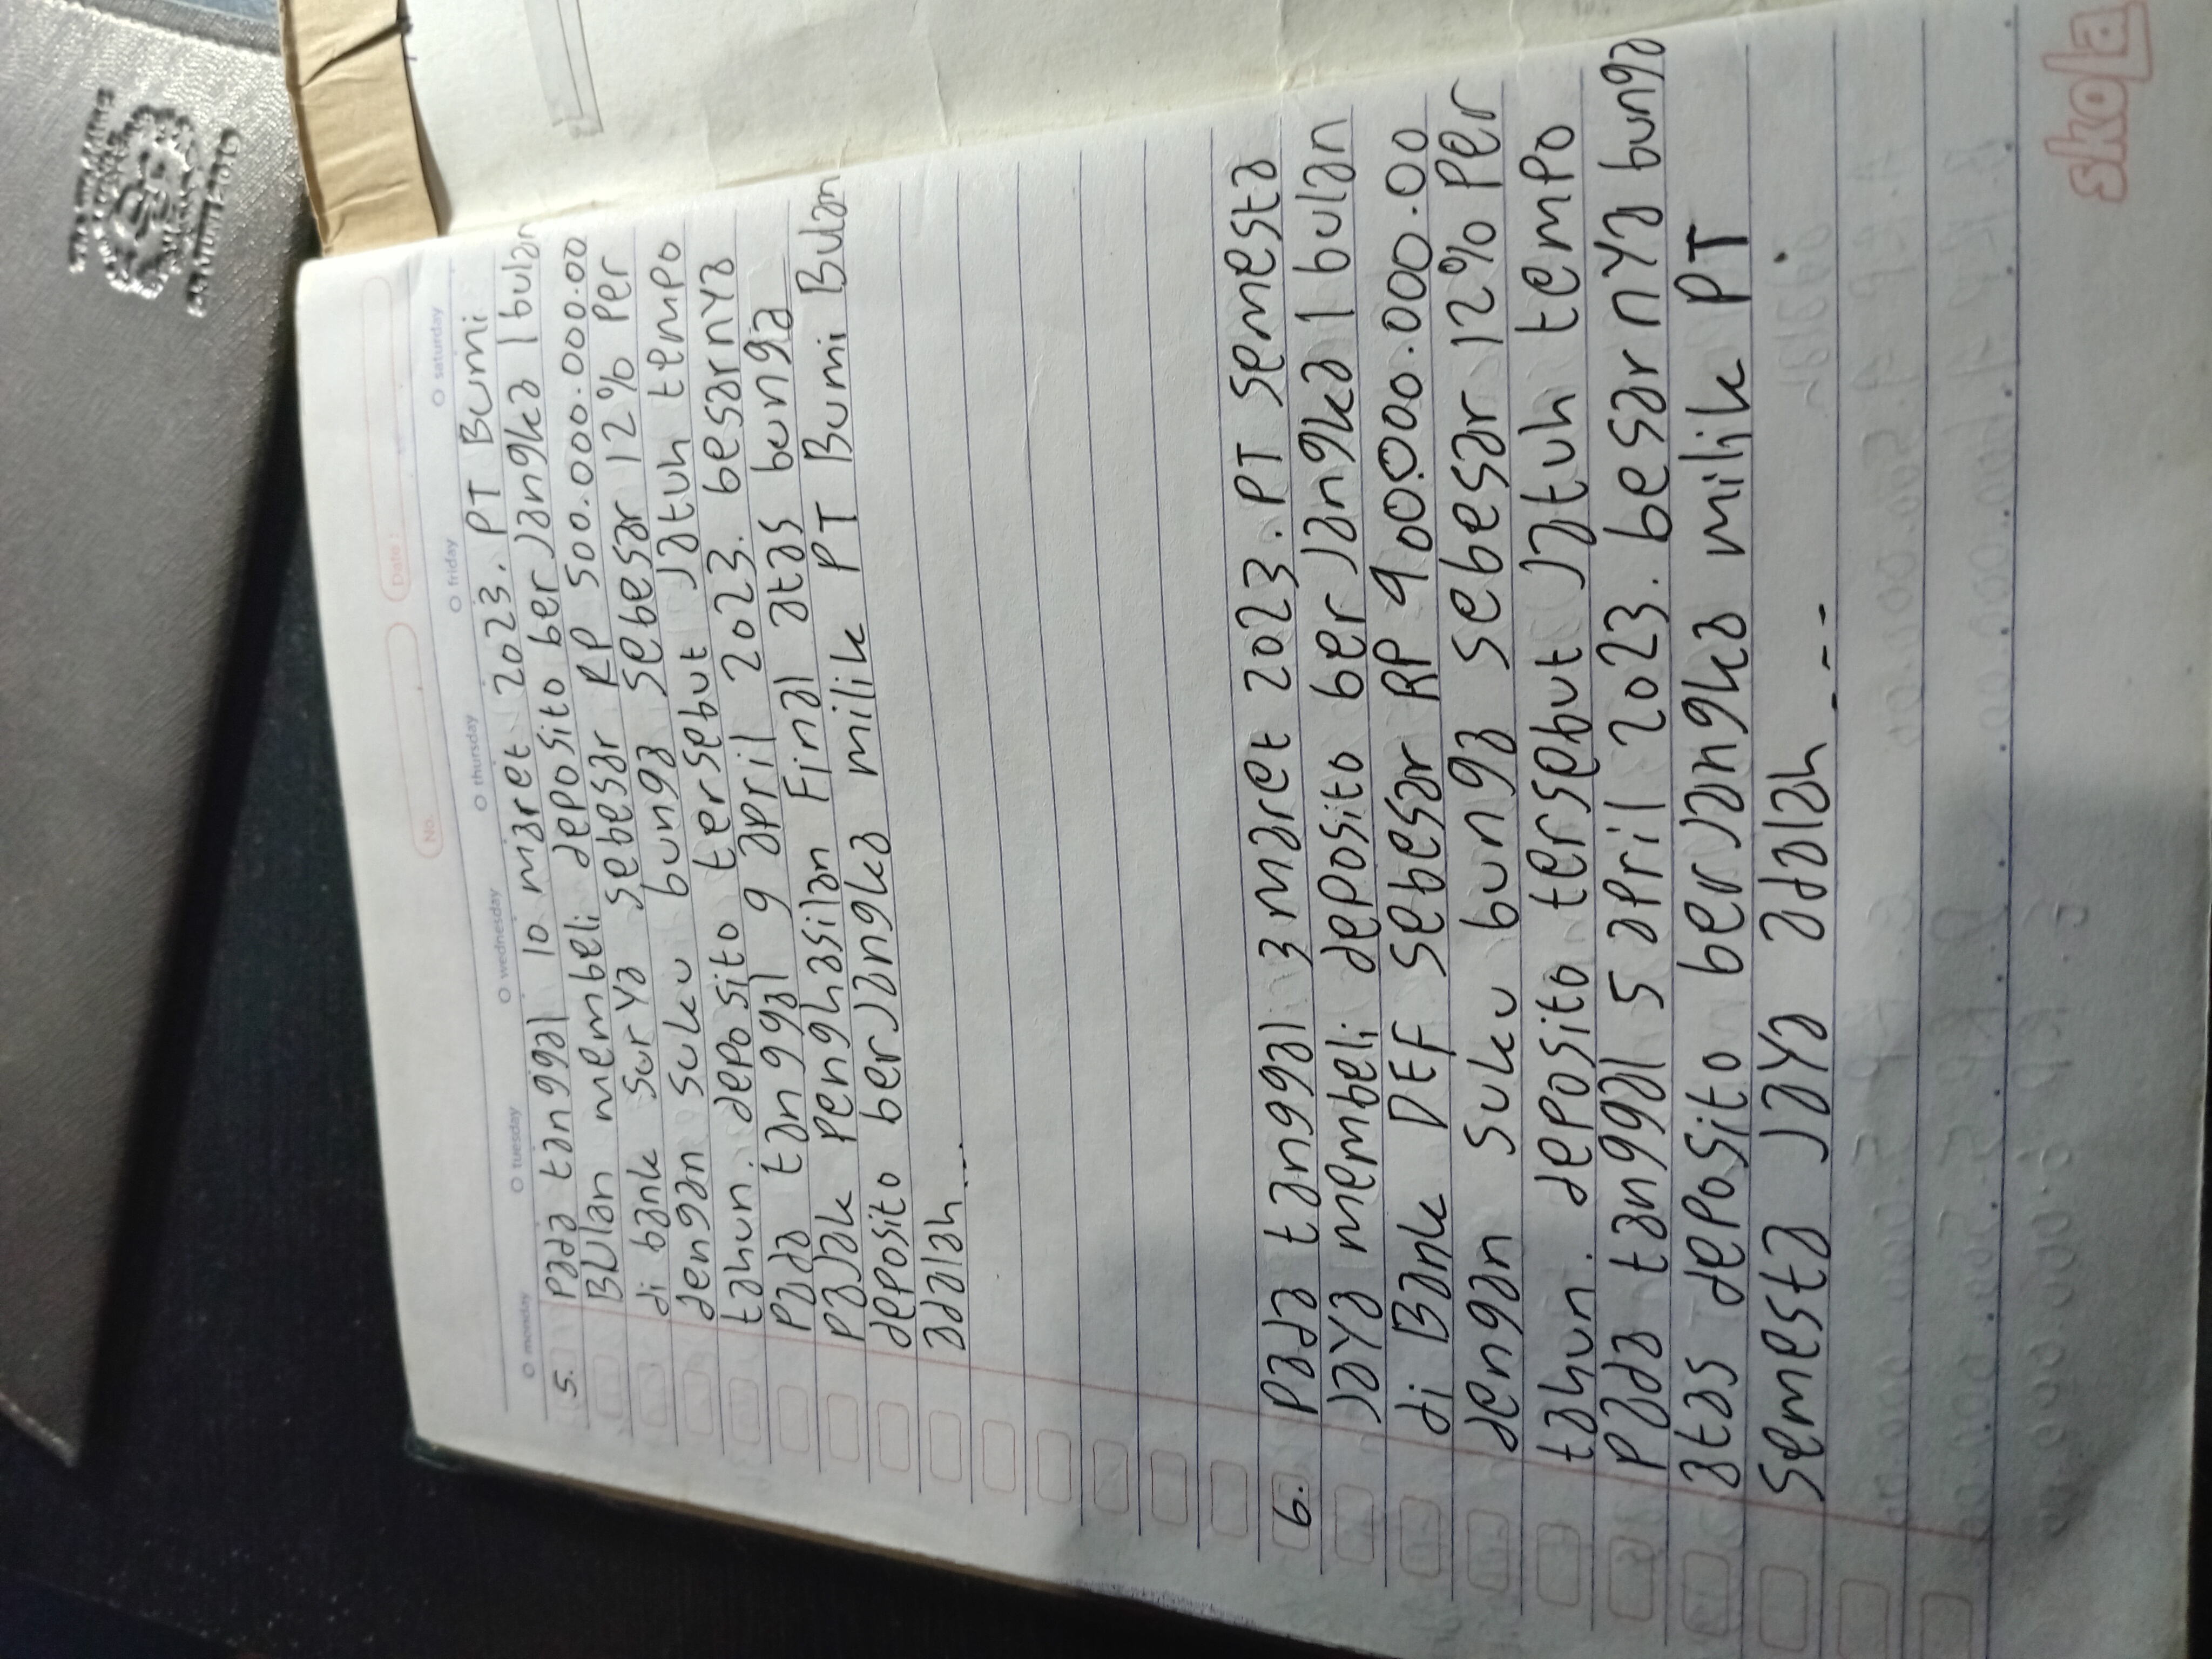 No.
Date :
monday tuesday wednesday thursday friday saturday
5. Pada tanggal 10 maret 2023. PT Bumi
Bulan membeli deposito berjangka 1 bulan
di bank surya sebesar RP 500.000.000.00
dengan suku bunga sebesar 12% per
tahun. deposito tersebut jatuh tempo
pada tanggal 9 april 2023. besarnya
pajak penghasilan Final atas bunga
deposito berjangka milik PT Bumi Bulan
adalah...
6. Pada tanggal 3 maret 2023. PT semesta
jaya membeli deposito berjangka 1 bulan
di Bank DEF sebesar RP 900.000.000.00
dengan suku bunga sebesar 12% per
tahun. deposito tersebut jatuh tempo
pada tanggal 5 april 2023. besarnya bunga
atas deposito berjangka milik PT
semesta jaya adalah ...
skola